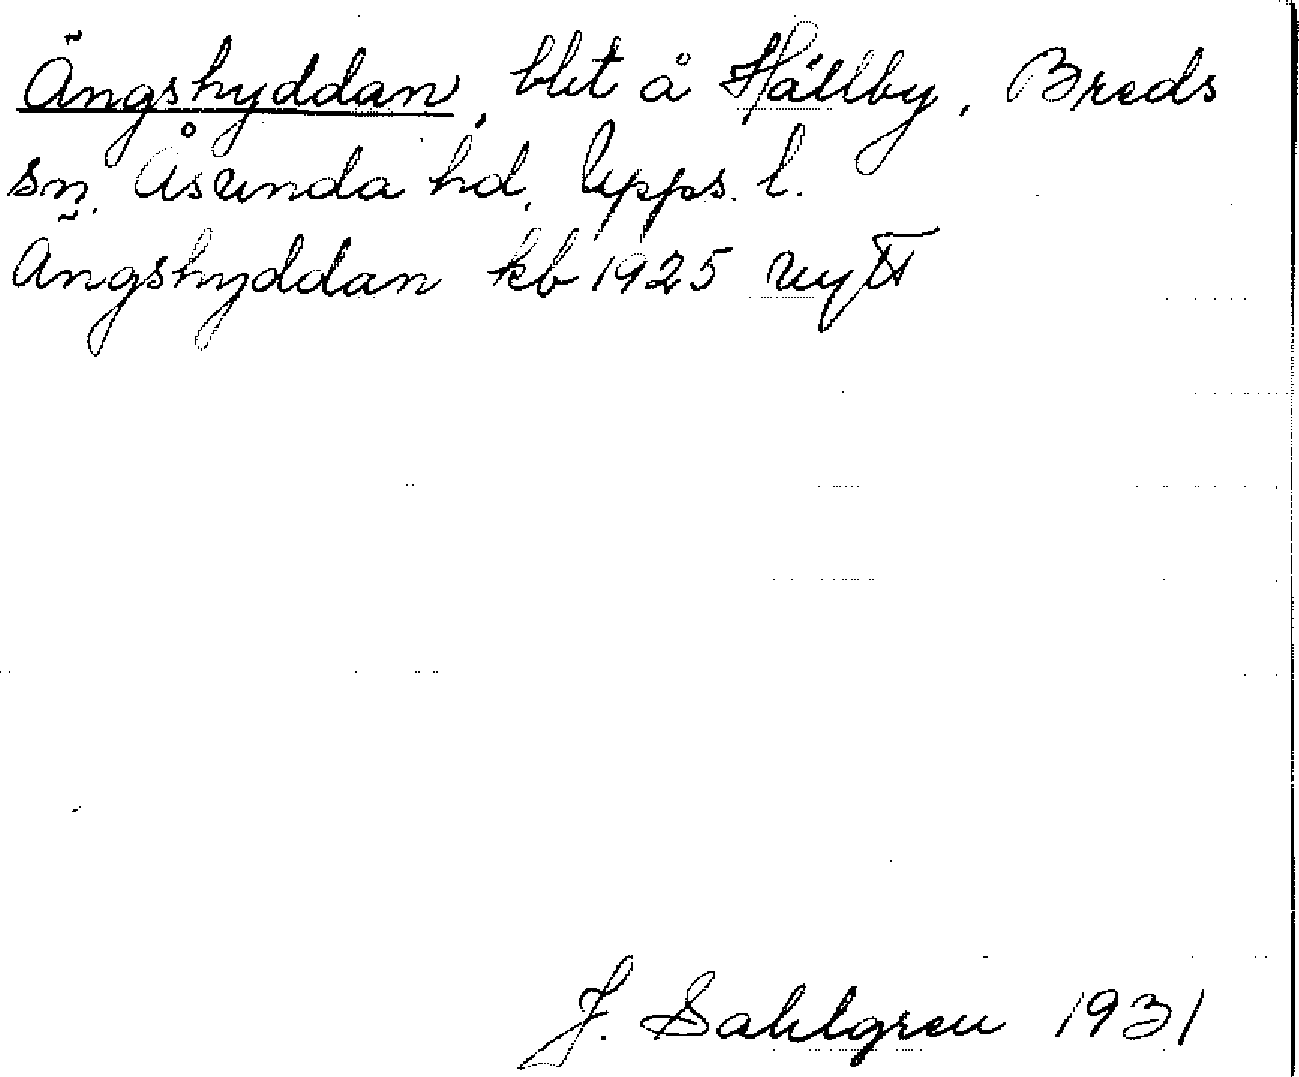 Ängshyddan, blt å Hällby, Breds
sn, Åsunda hd, Upps. l.
Ängshyddan kb 1925 nytt
J. Sahlgren 1931